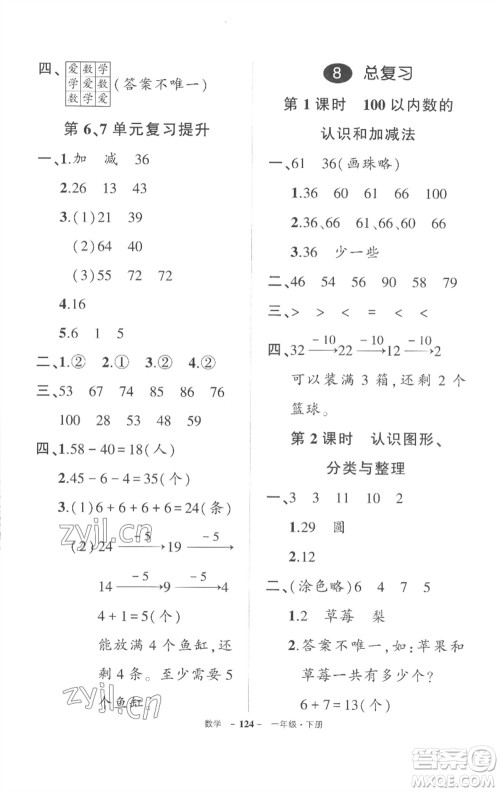 四、爱数学
学爱数(答案不唯一)
数学爱
第 6、7 单元复习提升
一、1.加 减 36
2.26 13 43
3.(1)21 39
(2)64 40
(3)55 72
4.16
5.6 1 5
二、1.② 2.① 3.② 4.②
三、53 67 74 76
100 28 58 55
四、1.58-40=18(人)
2.45-6-4=35(个)
3.(1)6+6+6+6=24(条)
(2)24 -5→ 19 -5→
14 -5→ 9 -5→ 4
4+1=5(个)
能放满 4 个鱼缸,还剩
剩 4 条。至少需要 5
个鱼缸。
zyjl.cn
zyjl.cn
8 总复习
第 1 课时 100 以内数的
认识和加减法
一、61 36(画珠略)
1.36 65 66 78 100
2.36、66 65、66
3.36 少一些
二、46 54 56 90 58 79
三、> > < = < >
四、32 -10→ 22 -10→ 12 -10→ 2
可以装满 3 箱,还剩 2 个
篮球。
第 2 课时 认识图形、
分类与整理
一、3 3 11 10 2
1.29 圆
2.12
二、(涂色略) 6 4 7 5
1.2 草莓 梨
2.答案不唯一,如:苹果和
草莓一共有多少个?
6+7=13(个)
数学 -124- 一年级·下册
答案圈
MXQE.COM